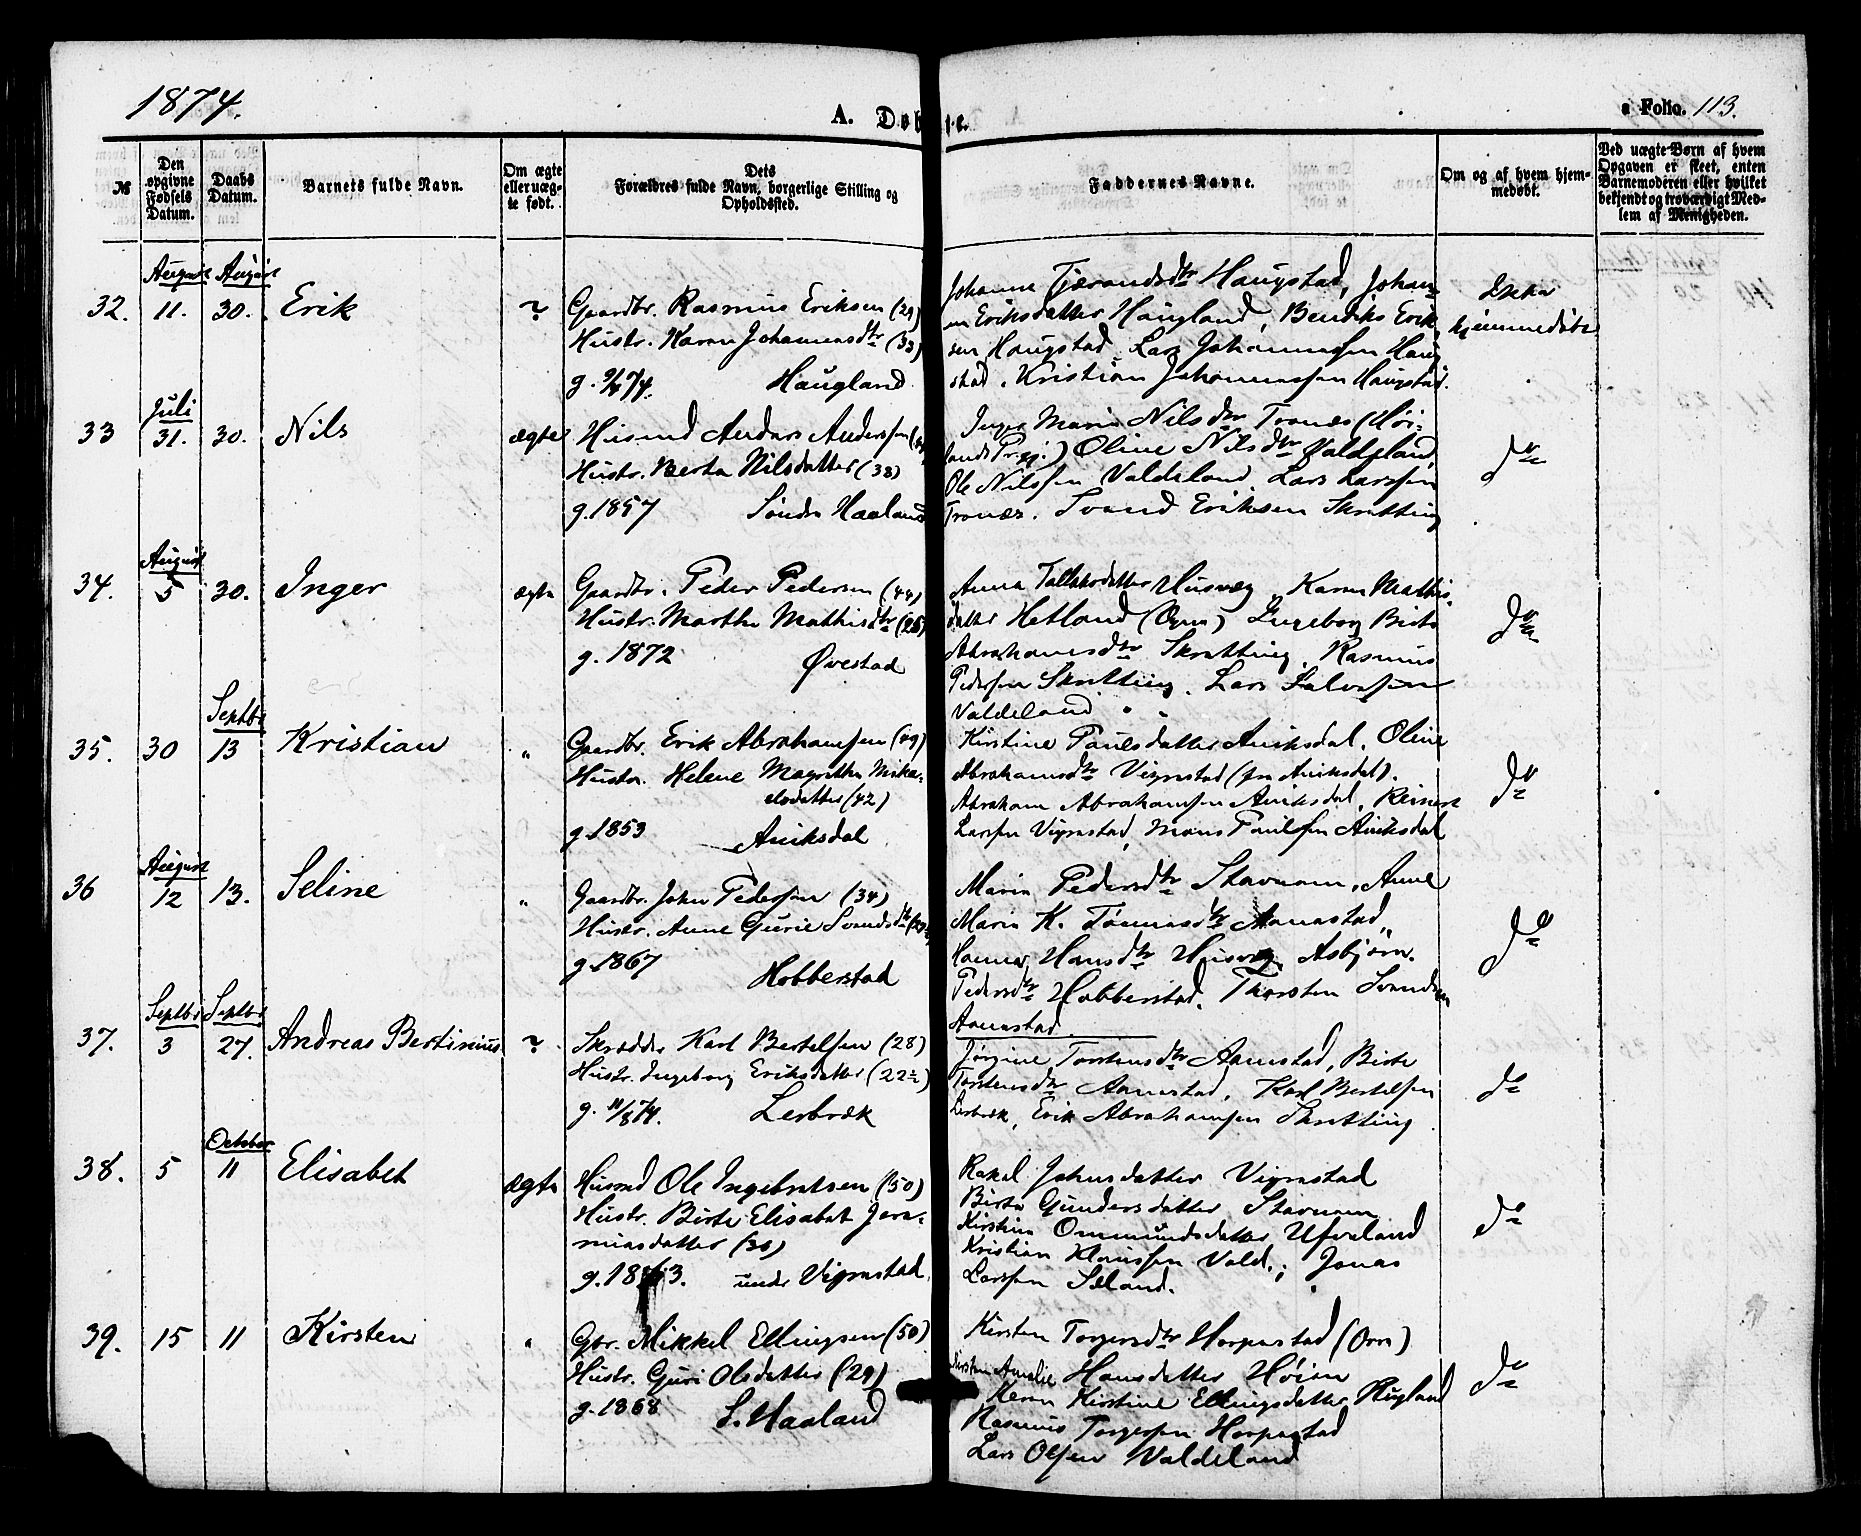 1874.
A. Døbte.
Folio. 113.
№
Den opgivne Fødsels Datum.
Daabs Datum.
Barnets fulde Navn.
Om ægte eller uægte født.
Dets Forældres fulde Navn, borgerlige Stilling og Opholdssted.
Faddernes Navne.
Om og af hvem hjemmedøbt.
Ved uægte Børn af hvem Opgaven er skeet, enten Barnemoderen eller hvilket bekjendt og troværdigt Medlem af Menigheden.
August August
32. 11. 30. Erik ? Gaardbr. Rasmus Eriksen (29)
Hustr. Karen Johannesdtr (33)
g. 74. Haugland
Johanne Tjerandsdtr Haugstad, Johan-
ne Eriksdatter Haugland, Bendiks Erik-
sen Haugstad, Lars Johannessen Haug-
stad, Kristian Johannessen Haugstad.
Ikke
hjemmedøbt
Juli
33 31. 30. Nils ægte Husmd Anders Anderssen
Hustr. Berta Nilsdatter (38)
g. 1857 Søndre Haaland
Inger Maria Nilsdtr Tronæs (Høi-
lands Prgj.) Oline Nilsdtr Valdeland,
Ole Nilssen Valdeland, Lars Larssen
Tronæs. Svend Eriksen Skretting
do
August
34. 5 30. Inger ægte Gaardbr. Peder Pedersen (44)
Hustr. Marthe Mathisdtr (26)
g. 1872 Øvestad
Anna Tollaksdatter Husvæg, Karen Mathis-
datter Hetland (Ogne) Ingeborg Birte
Abrahamsdtr Skretting, Rasmus
Pedersen Skretting, Lars Salvesen
Valdeland
do
Septbr
35. 30 13 Kristian " Gaardbr. Erik Abrahamsen (49)
Hustr. Helene Magrethe Mika-
elsdatter (42)
g. 1853 Aniksdal
Kirstine Paulsdatter Aniksdal, Oline
Abrahamsdtr Vigrestad (fra Aniksdal).
Abraham Abrahamsen Aniksdal, Reinert
Larssen Vigrestad, Mons Paulssen Aniksdal
do
August
36 12 13. Seline " Gaardbr. John Pedersen (34)
Hustr. Anne Gurie Svendsdtr
g. 1867 Hobberstad
Maria Pedersdtr Stavnem, Anne
Maria K. Tønnesdtr Aanestad,
Hanne Hansdtr Husvæg, Asbjørn
Pedersdtr Hobberstad, Thorsten Svendsen
Aanestad.
do
Septbr Septbr
37. 3 27. Andreas Bertinius ? Skrædder Karl Bertelsen (28)
Hustr. Ingeborg Eriksdatter (22½)
g. 11/8 74. Lerbræk
Jørgine Torstensdtr Aanestad, Birte
Torstensdtr Aanestad, Karl Bertelsen
Lerbræk, Erik Abrahamsen Skretting
do
October
38. 5 11 Elisabet ægte Husmd Ole Ingebretsen (50)
Hustr. Birte Elisabet Jere-
miasdatter (36)
g. 1863. under Vigrestad
Rakel Johnsdatter Vigrestad
Birte Gundersdatter Stavnem
Kirstine Ommundsdatter Ufveland
Kristian Klaussen Vald.; Jonas
Larssen Sæland.
do
39. 15 11 Kirsten " Gbr. Mikkel Ellingsen (50)
Hustr. Guri Olsdatter (29)
g. 1868 S. Haaland
Kirsten Torgersdtr Horpestad (Orre)
Kirsten Amalie Hansdatter Høien
Karen Kirstine Ellingsdatter Røgland
Rasmus Torgersen Horpestad
Lars Olsen Valdeland
do